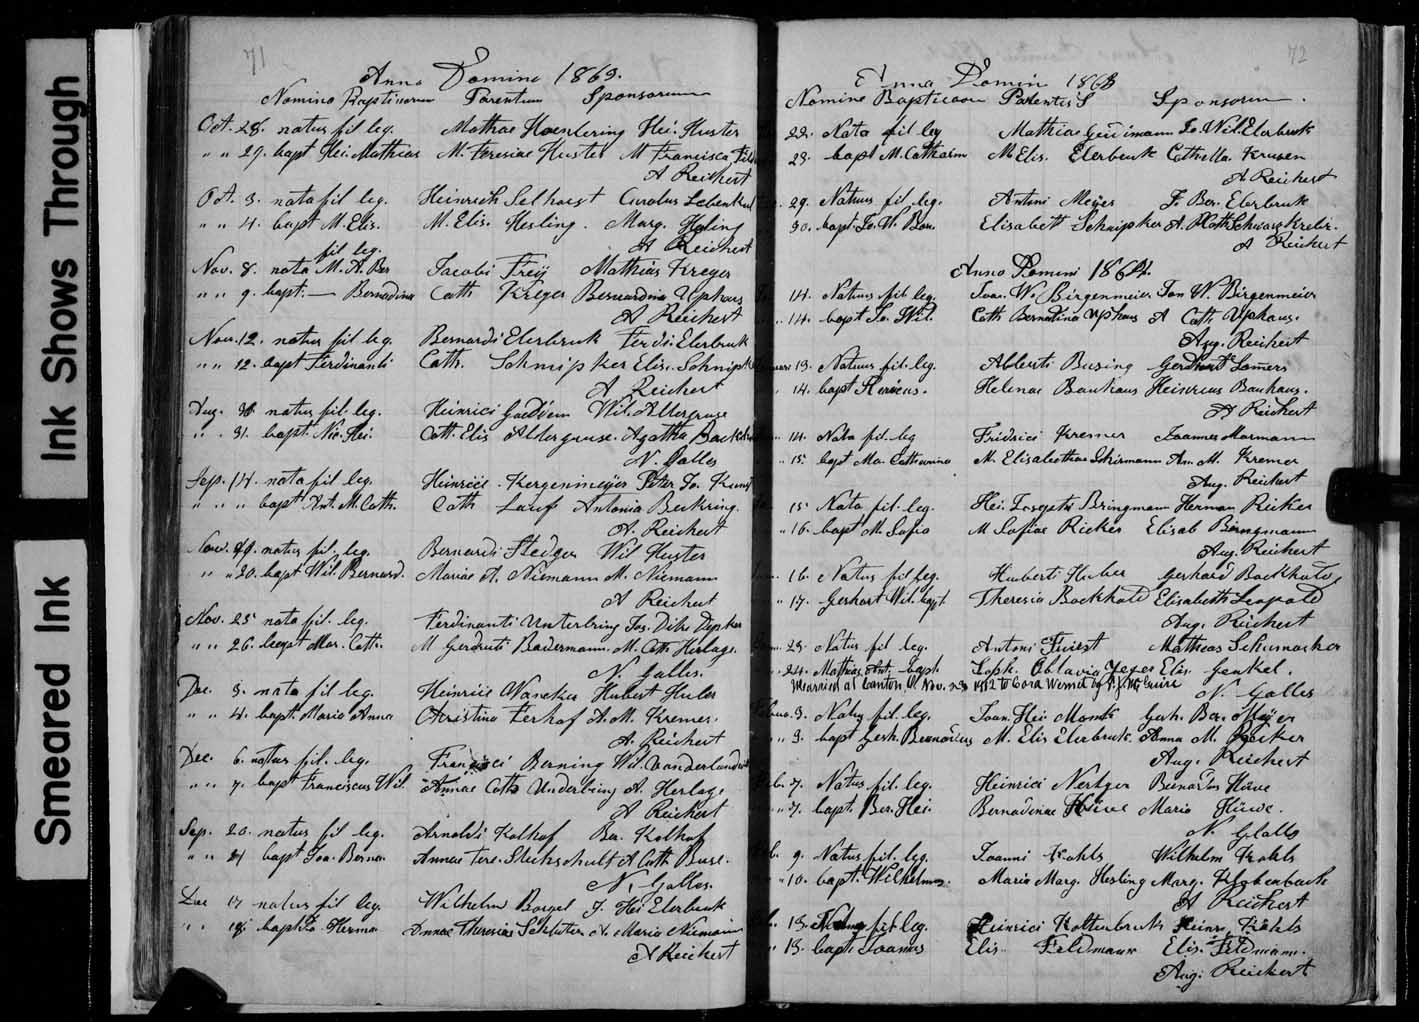 Ink Shows Through
Smeared Ink
71
Anno Domino 1863.
Nomino Baptisorum Parentum Sponsorum
Oct. 28. natus fil leg. Mathae Hei. Huster
" " 29. bapt Hei. Mathias M. Teresiae Huster M Francisca
A Reichert
Oct. 3. nata fil leg. Heinrich Selhorst Carolus
" " 4. bapt M. Elis. M. Elis. Hesling. Marg. Hesling
A Reichert
fil leg.
Nov. 8. nata M. A. Ber Jacobi Freÿ Mathias Kreyer
" " 9. bapt. — Bernadina Cath Kreyer Bernardina Uphaus
A Reichert
Nov. 12. natus fil leg. Bernardi Elerbruk Ferdi. Elerbruk
" " 12. bapt Ferdinanti Cath. Schnipker Elis. Schnipk
A Reichert
Aug. natus fil leg. Heinrici Wil. Allergruse
" " 31. bapt. Nic. Hei. Cath. Elis Allergruse. Agatha
N. Galles
Sep. 14. nata fil leg. Heinrici. Kergenmeijer Peter Jo.
" " " bapt Ant. M. Cath. Cath Antonia Beckring.
A. Reichert
Nov. natus fil. leg. Bernardi Wil Huster
" " 20. bapt Wil. Bernard. Mariae A. Niemann M. Niemann
A Reichert
Nov. 25 nata fil. leg. Ferdinanti Unterbring Jos.
" " 26. bapt Mar. Cath. M Gerdruti Badermann. M. Cath Herlage.
N. Galles.
Dec. 3. nata fil. leg. Heinrici Waneker Hubert Huber
" " 4. bapt. Maria Anna Christina Terhaf A. M. Kremer.
A. Reichert
Dec. 6. natus fil. leg. Francisci Berning Wil. Vanderland
" " 7. bapt Franciscus Wil. Annae Cath Underbring A. Herlage
A Reichert
Sep. 20. natus fil leg. Arnoldi Kolhof Ber. Kolhof
" " 21 bapt Joa. Berna. Annae Tere. Stechschult A Cath Buse.
N. Galles.
Dec 17 natus fil leg. Wilhelm Borgel J. Hei Elerbruk
" " 18. bapt Jo Herma Annae Theresiae Schluter A. Maria Niemann
A Reichert
72
Anna Domin 1863
Nomine Baptisorum Parentis Sponsorum.
22. Nata fil leg Mathias Jo. Wil. Elerbruk
23. bapt M. Catharin M Elis. Elerbruk Krusen
A Reichert
29. Natus fil. leg. Antoni Meÿer F. Ber. Elerbruk
30. bapt. Jo. W. Ber. Elisabett Schnipker A.
A Reichert
Anno Domini 1864.
14. Natus fil. leg. Joan. W. Birgenmeier Joan W. Birgenmeier
14. bapt Jo. Wil. Cath Bernadina Uphaus A Cath Uphaus.
Aug. Reichert
13. Natus fil. leg. Alberti Busing Gerdhart
14. bapt Henricus. Helenae Bauhaus Heinricus Bauhaus.
A Reichert
14. Nata fil. leg Fridrici Kremer Joannes Mormann
15. bapt Ma. Catharina M. Elisabetha Schirmann An. M. Kremer
Aug. Reichert
15 Nata fil. leg. Hei. Josephi Bringmann Herman Ricker
" 16. bapt M. Sofia M Sofiae Ricker Elisab Bringmann
Aug. Reichert
16. Natus fil leg. Huberti Huber Gerhard Backhold
" 17. Gerhart Wil. bapt. Theresia Backhold Elisabeth Leopold
Aug. Reichert
23. Natus fil leg. Antoni Furst Mathias Schumacher
" 24. Mathias Ant. bapt. Soph. Oktavia Jeger Elis. Genkel.
Married at Canton, O. Nov. 1912 to Cora Wernet by
N. Galles
3. Natus fil. leg. Joan. Hei Gerh. Ber. Meÿer
" 3. bapt Gerh. Bernardus M. Elis Elerbruck. Anna M. Recker
Aug. Reichert
7. Natus fil. leg. Heinrici Nertger Bernardus Hüve
" 7. bapt. Ber. Hei. Bernadinae Hüve Maria Hüve.
N. Galles
9. Natus fil. leg. Joanni Kohls Wilhelm Kohls
" 10. bapt. Wilhelmus. Maria Marg. Hesling Marg.
A Reichert
13. Natus fil. leg. Heinrici Heinr. Kohls
" 13. bapt. Joannes Elis. Feldmann Elis. Feldmann.
Aug. Reichert